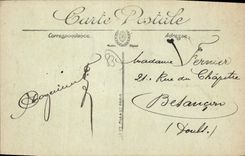 Carte Postale
Correspondance
Adresse
Madame Vernier
21 Rue du Chapitre
Besançon
(Doubs)